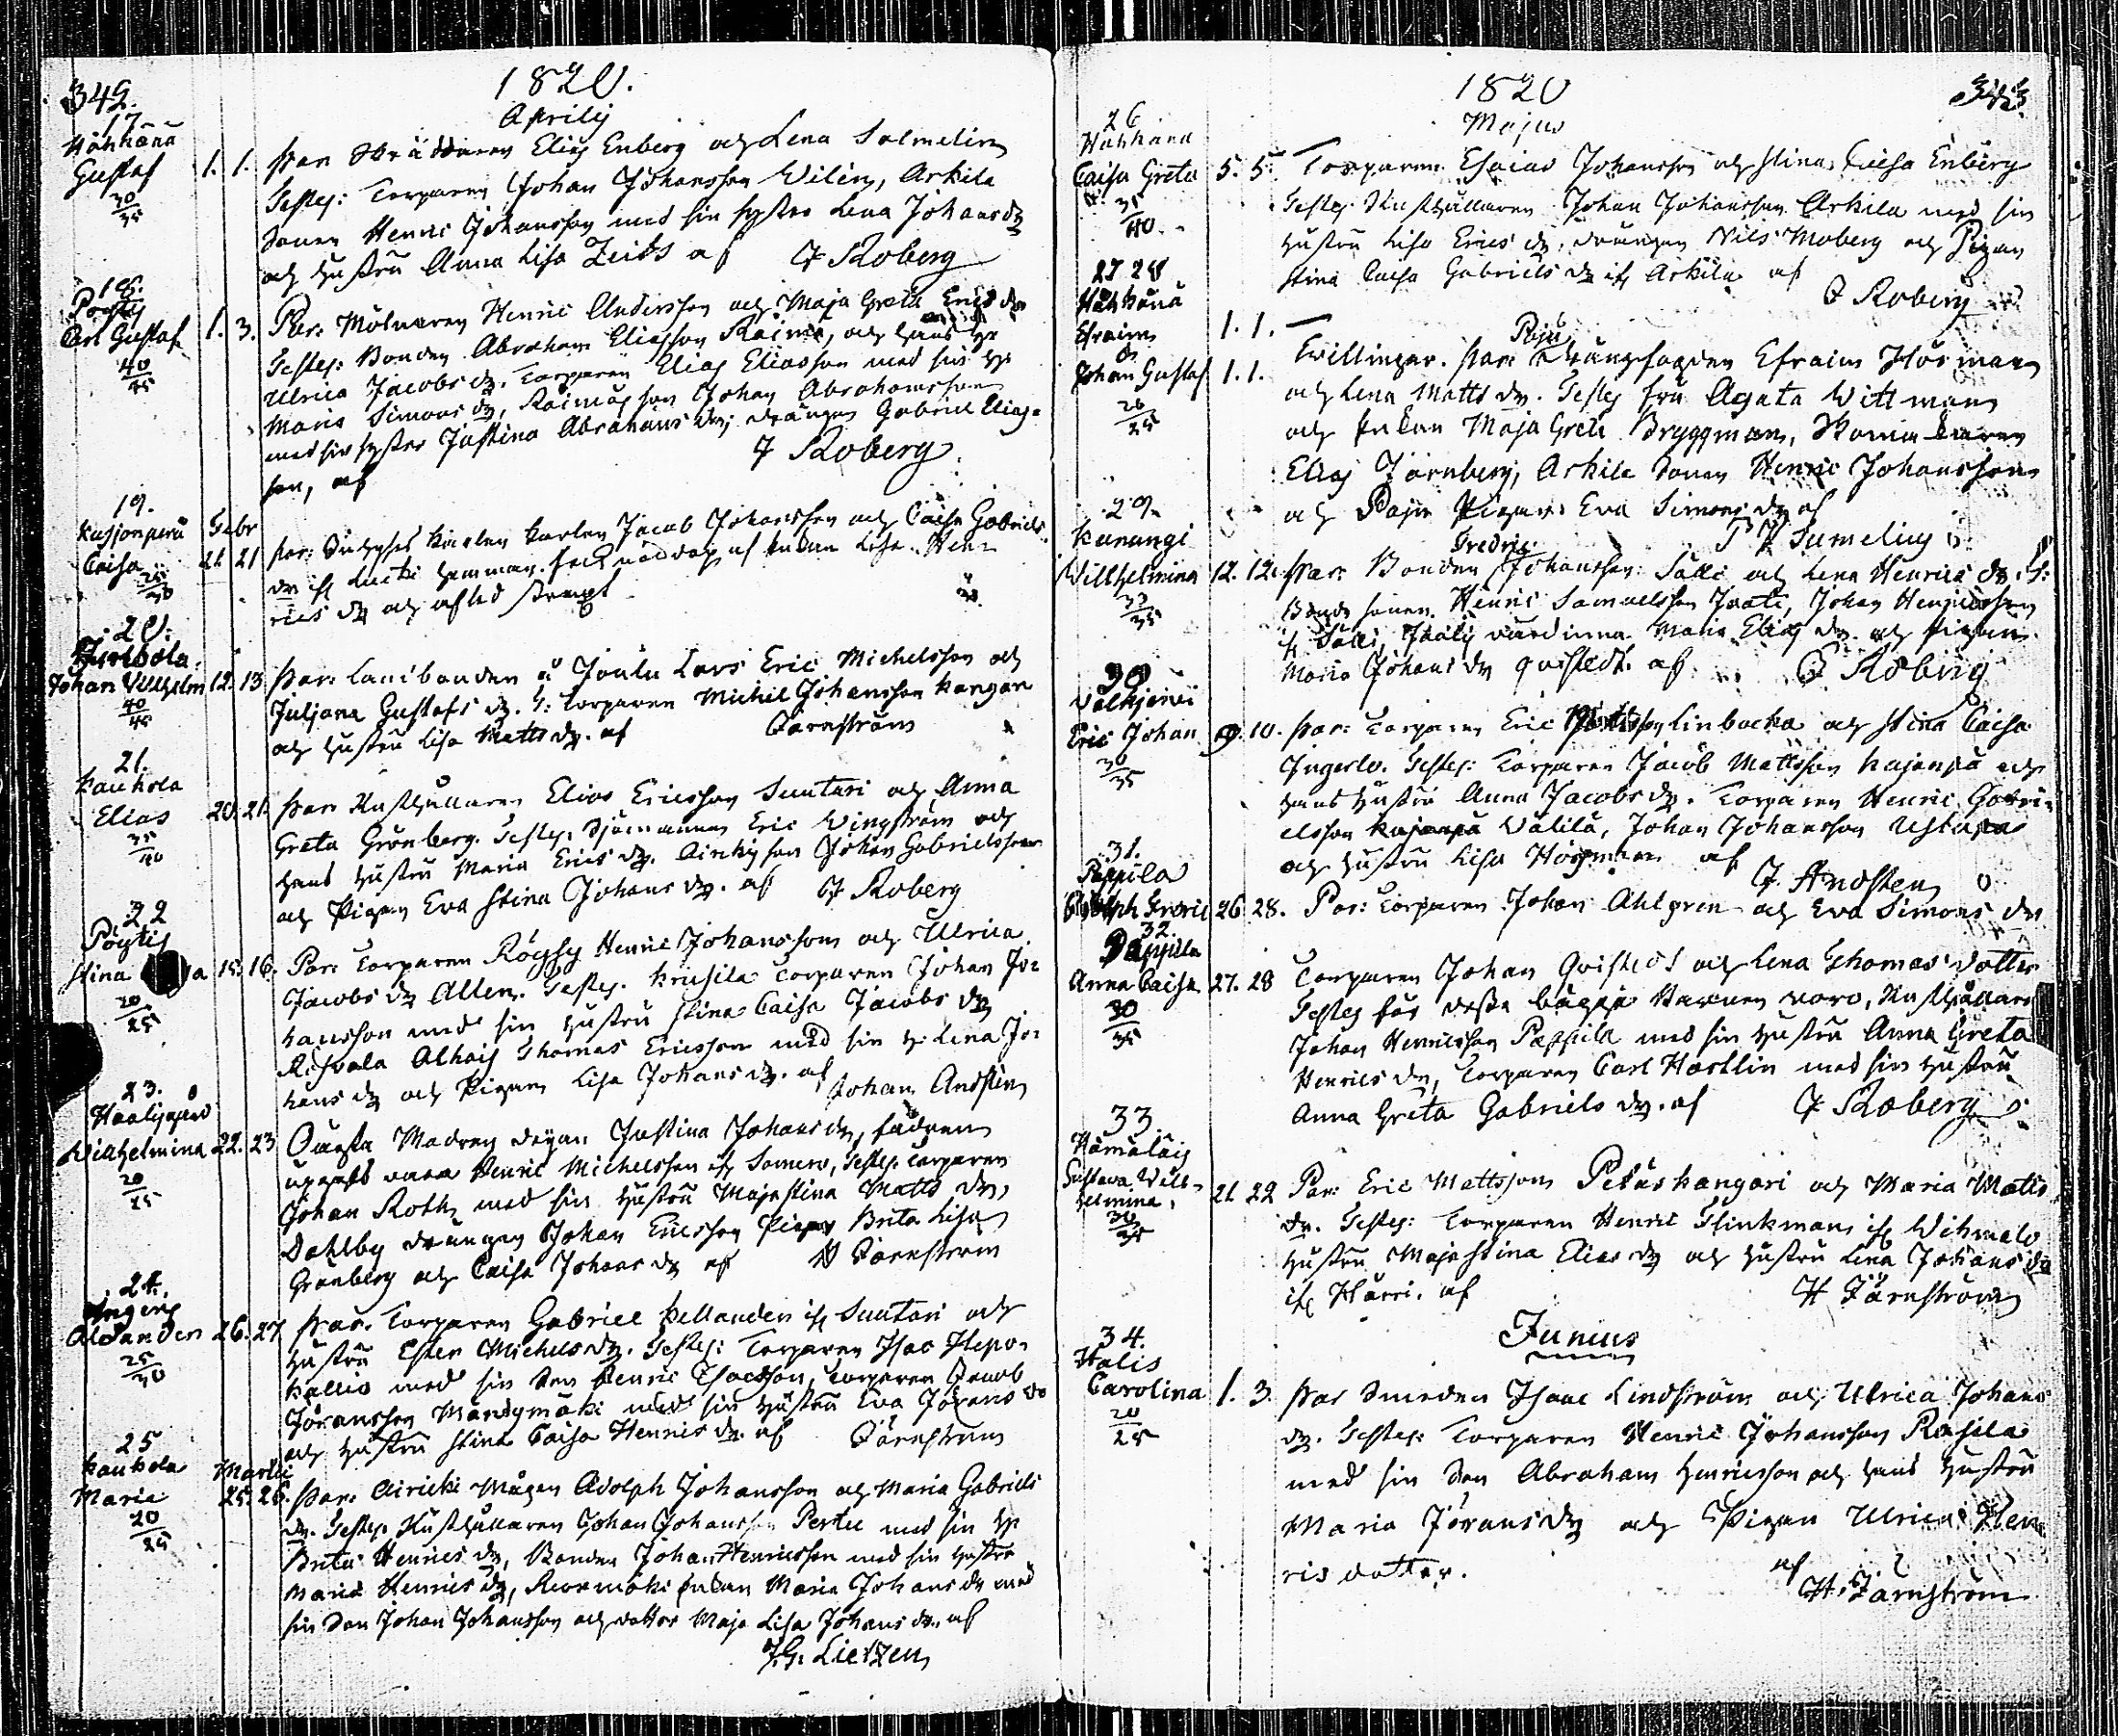 342.
1820.
Aprilij
17
Hähkänä
Gustaf
30/35
1. 1. Par. Skräddaren Elias Enberg och Lena Salmelin
Testes: Torparen Johan Johansson Wilén, Arkila
Sonen Henric Johansson med sin syster Lena Johansdr
och hustru Anna Lisa Zeits af J Roberg
18.
Pöyti
Carl Gustaf
40/45
1. 3. Par: Mölnaren Henric Andersson och Maja Greta Ericsdr
Testes: Bonden Abraham Eliasson Raima, och hans h:
Ulrica Jacobs dr. Torparen Elias Eliasson med sin h:
Maria Simonsdr, Raimas son Johan Abrahamsson
med sin syster Justina Abrahams dr, drängen Gabriel Elias-
son, af J Roberg
19.
Caisa
25/30
Febr
21 21 Par: Karlen Jacob Johansson och Caisa Gabriels
dr
rics dr och afled
20.
Johan Wilhelm
40/45
12. 13 Par: Landbonden å Joulu Lars Eric Michelsson och
Juliana Gustafs dr. T: Torparen Michel Johansson Kangar
och hustru Lisa Matts dr. af Järnström
21.
Kauhola
Elias
35/40
20. 21. Par: Rusthållaren Elias Ericsson Suutari och Anna
Greta Grönberg. Testes: Sjömannen Eric Wingström och
hans hustru Maria Erics dr. Airikis son Johan Gabrielsson
och Pigan Eva Stina Johans dr. af J Roberg
22
Pöytis
Stina
20/25
15. 16. Par: Torparen Röysy Henric Johansson och Ulrica
Jacobs dr Allen. Testes. Krusila Torparen Johan Jo-
hansson med sin hustru Stina Caisa Jacobs dr
Thomas Ericsson med sin h: Lena Jo-
hans dr och Pigan Lisa Johans dr. af Johan Andsten
23.
Wilhelmina
20/25
22. 23 Oäckta Modren Pigan Justina Johans dr, fadren
uppgafs vara Henric Michelsson if: Somero, Testes: Torparen
Johan Roth med sin hustru Maja Stina Matts dr,
Dahlby drängen Johan Ericsson Pigan Brita Lisa
Grönberg och Caisa Johans dr af H Järnström
24.
Alexander
25/30
26. 27 Par. Torparen Gabriel Hellander if: Suutari och
hustru Ester Michels dr. Testes: Torparen Isac Hepo-
kallio med sin son Henric Isacsson, Torparen Jacob
Jöransson Mändymäki med sin hustru Eva Jörans dr
och hustru Stina Caisa Henrics dr. af Järnström
25
Kauhola
Maria
20/25
Martii
25. 26. Par: Airicki Mågen Adolph Johansson och Maria Gabriels
dr. Testes Rusthållaren Johan Johansson Perttu med sin h:
Brita Henrics dr, Bonden Johan Henricsson med sin hustru
Maria Henrics dr, Enkan Maria Johans dr med
sin Son Johan Johansson och dotter Maja Lisa Johans dr. af
J.G. Lietzen
1820
343
Majus
26
Hähkänä
Caisa Greta
35/40
5. 5. Torparen Esaias Johansson och Stina Caisa Enberg
Testes. Rusthållaren Johan Johansson Arkila med sin
hustru Lisa Erics dr, drängen Nils Moberg och Pigan
Stina Caisa Gabriels dr if: Arkila af J Roberg
27 28
Hähkänä
Efraim
&
Johan Gustaf
20/25
1. 1.
1. 1.
Paju
Twillingar. Par: Ränsfogden Efraim Hörman
och Lena Matts dr. Testes fru Agata Wittman
och Enkan Maja Greta Bryggman, Skomakaren
Elias Järnberg, Arkila Sonen Henric Johansson
och Paju Pigan Eva Simons dr af
P J Sumelius
29.
Kanungi
Willhelmina
12. 12. Par: Bonden Fredric Johansson Salli och Lena Henrics dr. T:
Bonde sonen Henric Samuelsson Jaati, Johan Henricsson
if: Salli, Jaatis värdinna Maria Elias dr. och Pigan
Maria Johans dr Qvistedt. af J Roberg
30
Valkjerwi
Eric Johan
30/35
9. 10. Par: Torparen Eric Mattsson Linbacka och Stina Caisa
Ingerlo. Testes: Torparen Jacob Mattsson Kajanpä och
hans hustru Anna Jacobs dr. Torparen Henric Gabri-
elsson Kajanpä Välilä, Johan Johansson
och hustru Lisa Hörman af J Andsten
31.
Pappila
Adolph Fredric
26 28. Par: Torparen Johan Ahlgren och Eva Simons dr
32.
Pappila
Anna Caisa
30/35
27. 28 Torparen Johan Qvistedt och Lena Thomas dotter
Testes för dessa bägge barnen voro, Rusthållare
Johan Henricsson Pappila med sin hustru Anna Greta
Henrics dr, Torparen Carl Hartlin med sin hustru
Anna Greta Gabriels dr. af J Roberg
33
Hämäläis
Gustava Wilhelmina.
30/35
21. 22 Par: Eric Mattsson Petäskangari och Maria Matts
dr. Testes: Torparen Henric Flinkman if: Wihmalo
hustru Maja Stina Elias dr och hustru Lena Johans dr
if: Härri. af H Järnström
Junius
34.
Halis
Carolina
20/25
1. 3. Par Smeden Isaac Lindström och Ulrica Johans
dr. Testes: Torparen Henric Johansson Rasila
med sin Son Abraham Henricsson och hans hustru
Maria Jörans dr och Pigan Ulrica Hen
rics dotter. af
H. Järnström